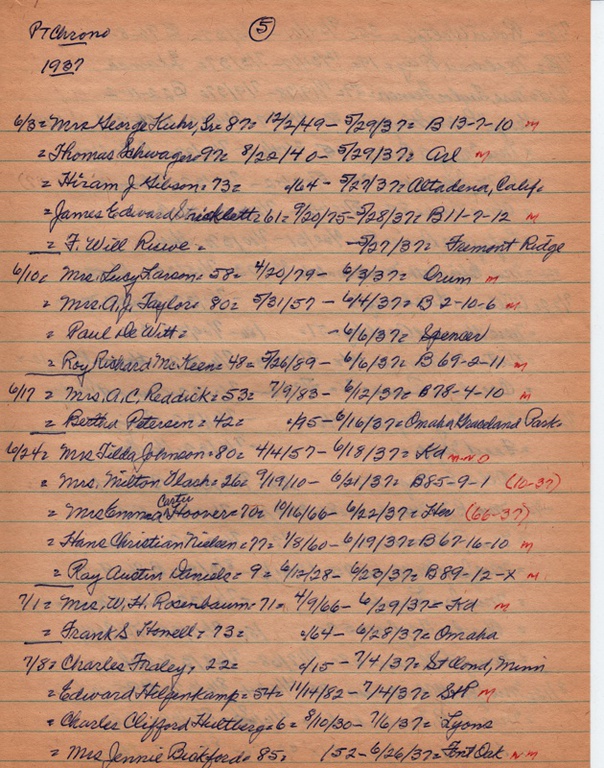 PT Chrono (5)
1937
6/3 = Mrs George Kuhr, Sr = 87 = 12/2/49 - 5/29/37 = B 13-7-10 m
= Thomas Schwager = 97 = 8/22/40 - 5/29/37 = Arl m
= Hiram J. Gibson = 73 = c/64 - 5/27/37 = Altadena, Calif.
= James Edward Stricklett = 61 = 9/20/75 - 5/28/37 = B 11-7-12 m
= F. Will = - 5/27/37 = Fremont Ridge
6/10 = Mrs. Lucy Larson = 58 = 4/20/79 - 6/3/37 = Orum m
= Mrs. A.J. Taylor = 80 = 5/31/57 - 6/4/37 = B 2-10-6 m
= Paul DeWitt = - 6/6/37 = Spencer
= Roy Richard McKeen = 48 = 5/26/89 - 6/6/37 = B 69-2-11 m
6/17 = Mrs. A.C. Reddick = 53 = 7/9/83 - 6/12/37 = B78-4-10 m
= Bertha Petersen = 42 = c/95 - 6/16/37 = Omaha Graceland Park
6/24 = Mrs Tilda Johnson = 80 = 4/4/57 - 6/18/37 = Kd m-n0
= Mrs. Milton Vlach = 26 = 9/19/10 - 6/21/37 = B85-9-1 (10-37)
= Mrs Emma Carter Hoover = 70 = 10/16/66 - 6/22/37 = Her (66-37)
= Hans Christian Nielsen = 77 = 1/8/60 - 6/19/37 = B 67-16-10 m
= Ray Austin Daniels = 9 = 6/12/28 - 6/23/37 = B 89-12-X m
7/1 = Mrs. W. H. Rosenbaum = 71 = 4/9/66 - 6/29/37 = Kd m
= Frank S. Howell = 73 = c/64 - 6/28/37 = Omaha
7/8 = Charles Fraley, 22 = c/15 - 7/4/37 = St Cloud, Minn
= Edward Hilgenkamp = 54 = 11/14/82 - 7/4/37 = StP m
= Charles Clifford Huttberg = 6 = 8/10/30 - 7/6/37 = Lyons
= Mrs Jennie Bickford = 85 = 152 - 6/26/37 = Font Oak nm